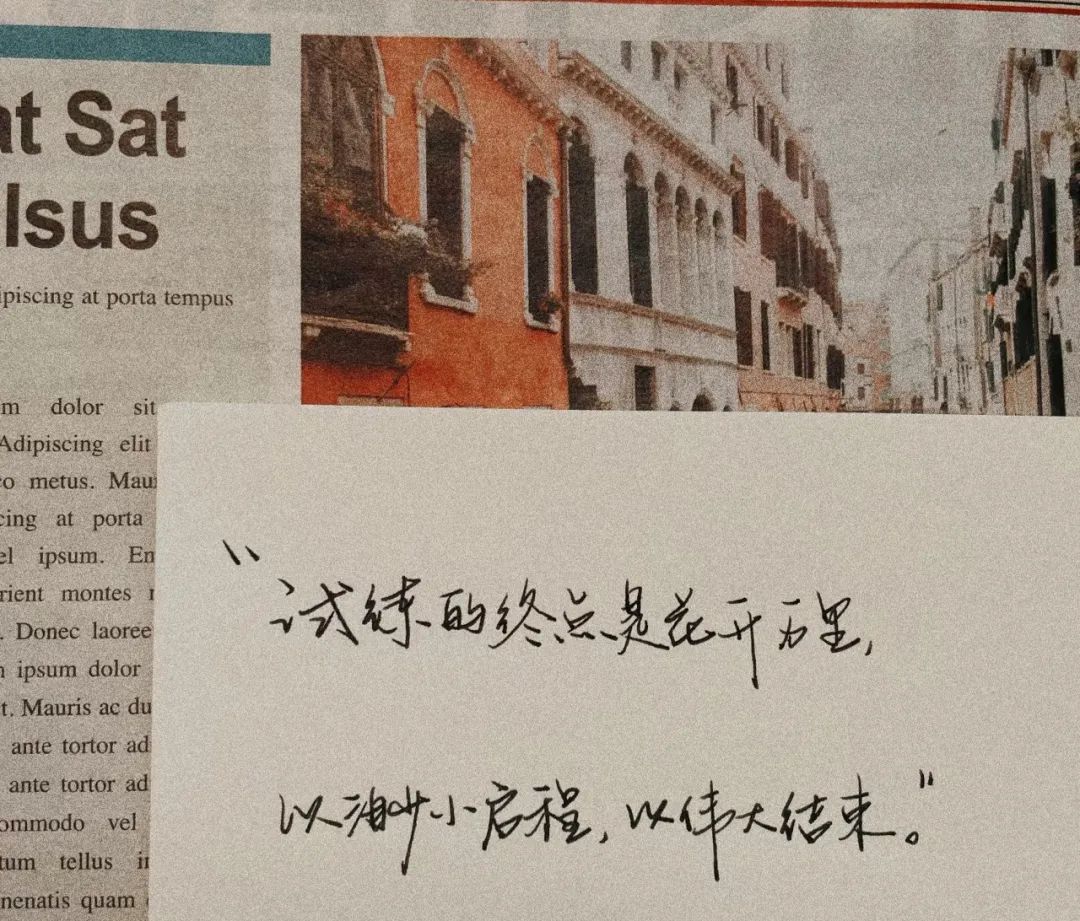 at Sat
lsus
ipiscing at porta tempus
m dolor sit
Adipiscing elit
o metus. Mau
cing at porta
el ipsum. En
rient montes
. Donec laoree
ipsum dolor
t. Mauris ac du
ante tortor ad
ante tortor ad
ommodo vel
tum tellus in
nenatis quam
“试练的终点是花开万里,
以渺小启程,以伟大结束。”